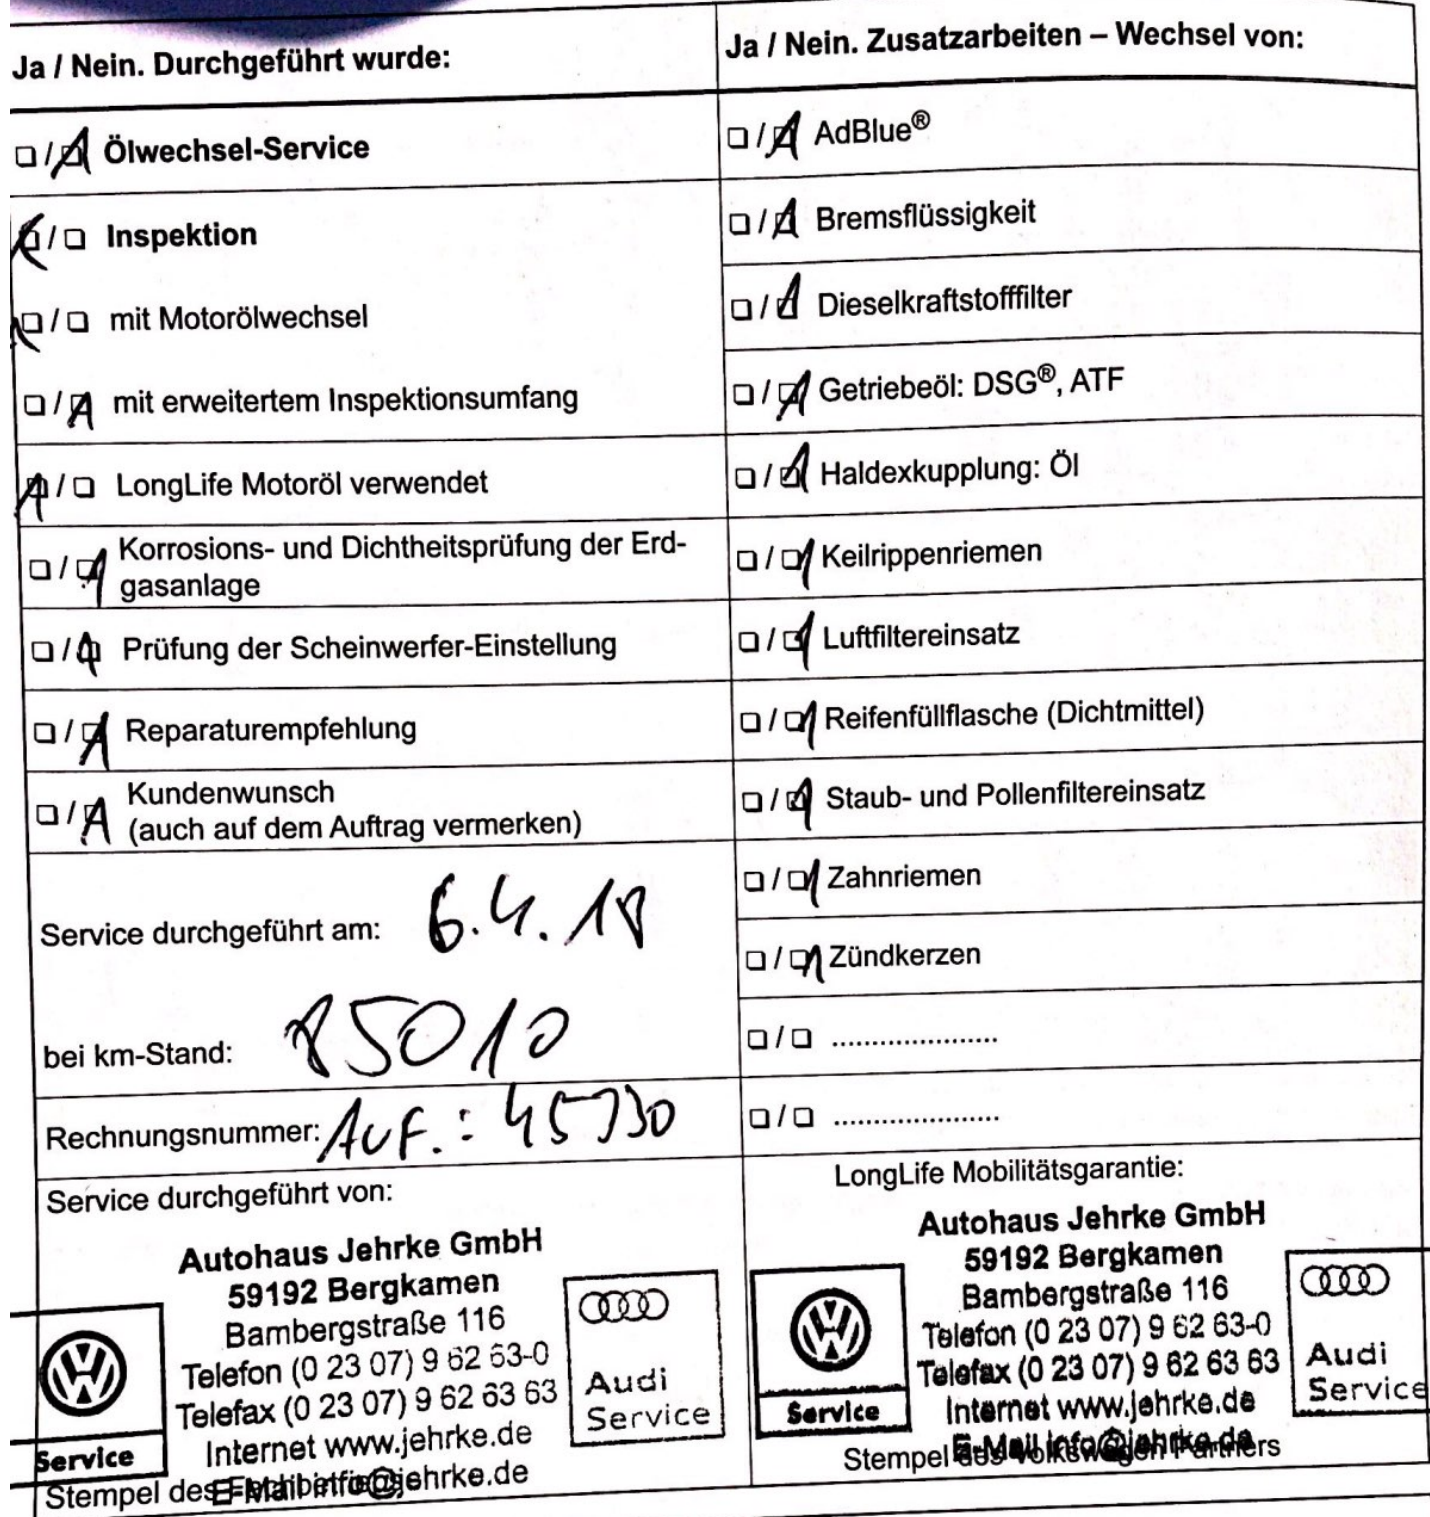 Ja / Nein. Durchgeführt wurde:
Ölwechsel-Service
Inspektion
mit Motorölwechsel
mit erweitertem Inspektionsumfang
LongLife Motoröl verwendet
Korrosions- und Dichtheitsprüfung der Erd-
gasanlage
Prüfung der Scheinwerfer-Einstellung
Reparaturempfehlung
Kundenwunsch
(auch auf dem Auftrag vermerken)
Service durchgeführt am: 6.4.18
bei km-Stand: 85010
Rechnungsnummer: Auf.:
Service durchgeführt von:
Autohaus Jehrke GmbH
59192 Bergkamen
Bambergstraße 116
Telefon (0 23 07) 9 62 63-0
Telefax (0 23 07) 9 62 63 63
Internet www.jehrke.de
E-Mail info@jehrke.de
Service
Audi
Service
Stempel des
Ja / Nein. Zusatzarbeiten – Wechsel von:
AdBlue®
Bremsflüssigkeit
Dieselkraftstofffilter
Getriebeöl: DSG®, ATF
Haldexkupplung: Öl
Keilrippenriemen
Luftfiltereinsatz
Reifenfüllflasche (Dichtmittel)
Staub- und Pollenfiltereinsatz
Zahnriemen
Zündkerzen
.....................
.....................
LongLife Mobilitätsgarantie:
Autohaus Jehrke GmbH
59192 Bergkamen
Bambergstraße 116
Telefon (0 23 07) 9 62 63-0
Telefax (0 23 07) 9 62 63 63
Internet www.jehrke.de
E-Mail info@jehrke.de
Service
Audi
Service
Stempel des Volkswagen Partners